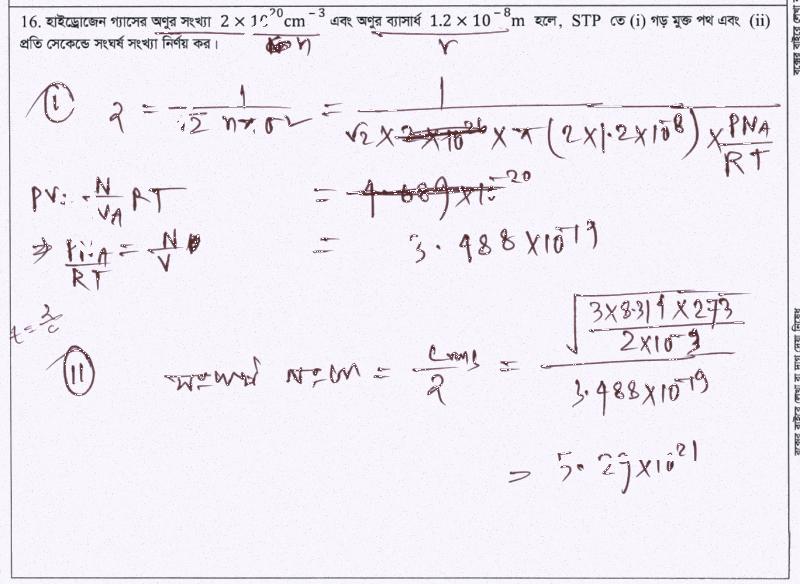 16. হাইড্রোজেন গ্যাসের অণুর সংখ্যা 2 × 10²⁰cm⁻³ এবং অণুর ব্যাসার্ধ 1.2 × 10⁻⁸m হলে, STP তে (i) গড় মুক্ত পথ এবং (ii)
প্রতি সেকেন্ডে সংঘর্ষ সংখ্যা নির্ণয় কর।
n r
(i) λ = 1/(√2 nπσ²) = 1/(√2 × π × (2×1.2×10⁻⁸) × PNA/RT)
PV = N/NA RT
⇒ PNA/RT = N/V = 3.488×10⁻¹⁹
(ii) সংঘর্ষ সংখ্যা = Crms/λ = √(3×8.314×273/2×10⁻³)/3.488×10⁻¹⁹
= 5.29×10²¹